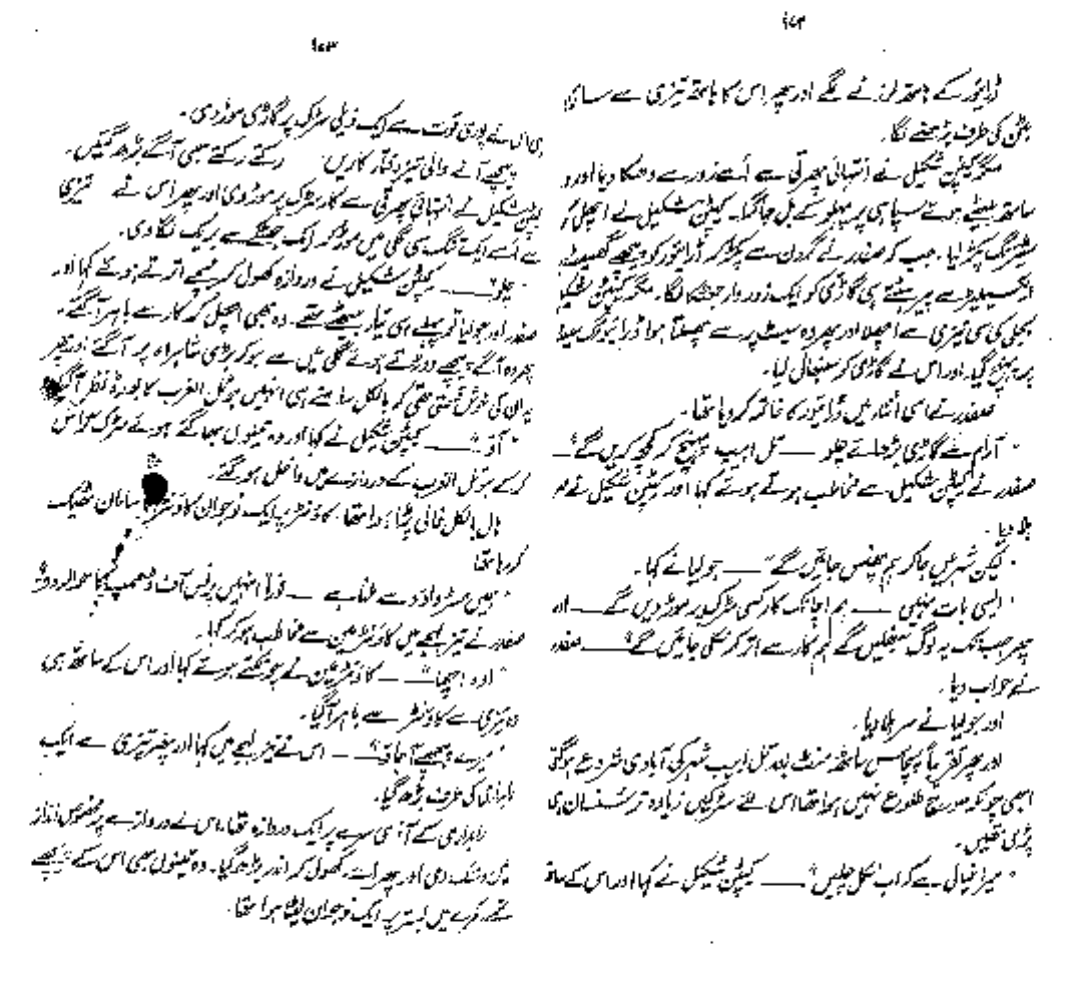 ۱۷۲
ڈرائیور کے ہاتھ لرزنے لگے اور پھر اس کا ہاتھ تیزی سے سائی
بٹن کی طرف بڑھنے لگا۔
مگر کیپٹن شکیل نے انتہائی پھرتی سے اُسے زور سے دھکا دیا اور و
ساتھ بیٹھے ہوئے سپاہی پر پہلو کے بل جا گرا۔ کیپٹن شکیل نے اچھل کر
سٹیرنگ پکڑ لیا۔ جب کہ صفدر نے گردن سے پکڑ کر ڈرائیور کو پیچھے گھسیٹ
ایکسیلیٹر سے پیر ہٹتے ہی گاڑی کو ایک زوردار جھٹکا لگا۔ مگر کیپٹن شکیل
بجلی کی سی تیزی سے اچھلا اور پھر وہ سیٹ پر سے پھسلتا ہوا ڈرائیونگ سیٹ
پر پہنچ گیا۔ اور اس نے گاڑی کو سنبھال لیا۔
صفدر نے اسی اثناء میں ڈرائیور کا خاتمہ کر دیا تھا۔
"آرام سے گاڑی بڑھائے چلو — تل ابیب پہنچ کر کچھ کریں گے" —
صفدر نے کیپٹن شکیل سے مخاطب ہوتے ہوئے کہا اور کیپٹن شکیل نے سر
ہلا دیا۔
"لیکن شہر میں جا کر ہم پھنس جائیں گے" — جولیا نے کہا۔
"ایسی بات نہیں — ہم اچانک کار کسی سڑک پر موڑ دیں گے — اور
پھر جب تک یہ لوگ سنبھلیں گے ہم کار سے اتر کر نکل جائیں گے" — صفدر
نے جواب دیا۔
اور جولیا نے سر ہلا دیا۔
اور پھر تقریباً پچاس ساٹھ منٹ بعد تل ابیب شہر کی آبادی شروع ہو گئی
ابھی چونکہ سورج طلوع نہیں ہوا تھا اس لئے سڑکیں زیادہ تر سنسان ہی
پڑی تھیں۔
"میرا خیال ہے کہ اب نکل چلیں" — کیپٹن شکیل نے کہا اور اس کے ساتھ
۱۷۳
ہی اس نے پوری قوت سے ایک ذیلی سڑک پر گاڑی موڑ دی۔
پیچھے آنے والی تیز رفتار کاریں رکتے رکتے بھی آگے بڑھ گئیں۔
کیپٹن شکیل نے انتہائی پھرتی سے کار سڑک پر موڑ دی اور پھر اس نے تیزی
سے اُسے ایک تنگ سی گلی میں موڑ کر ایک جھٹکے سے بریک لگا دی۔
"چلو" — کیپٹن شکیل نے دروازہ کھول کر نیچے اترتے ہوئے کہا اور
صفدر اور جولیا تو پہلے ہی تیار بیٹھے تھے۔ وہ بھی اچھل کر کار سے باہر آ گئے۔
پھر وہ آگے پیچھے دوڑتے ہوئے گلی میں سے ہو کر بڑی شاہراہ پر آ گئے اور پھر
یہ ان کی خوش قسمتی تھی کہ بالکل سامنے ہی انہیں ہوٹل العرب کا بورڈ نظر آ گیا
"آؤ" — کیپٹن شکیل نے کہا اور وہ تینوں بھاگتے ہوئے سڑک کراس
کر کے ہوٹل العرب کے دروازے میں داخل ہو گئے۔
ہال بالکل خالی پڑا ہوا تھا۔ کاؤنٹر پر ایک نوجوان کاؤنٹر سامان ٹھیک
کر رہا تھا
"ہمیں مسٹر داؤد سے ملنا ہے — فوراً انہیں پرنس آف ڈھمپ کا حوالہ دو"
صفدر نے تیز لہجے میں کاؤنٹر مین سے مخاطب ہو کر کہا۔
"اوہ اچھا" — کاؤنٹر مین نے چونکتے ہوئے کہا اور اس کے ساتھ ہی
وہ تیزی سے کاؤنٹر سے باہر آ گیا۔
"میرے پیچھے آ جائیں" — اس نے تیز لہجے میں کہا اور پھر تیزی سے ایک
راہداری کی طرف بڑھ گیا۔
راہداری کے آخری سرے پر ایک دروازہ تھا۔ اس نے دروازے پر مخصوص انداز
میں دستک دی اور پھر اسے کھول کر اندر بڑھ گیا۔ وہ تینوں بھی اس کے پیچھے
تھے۔ کمرے میں بستر پر ایک نوجوان لیٹا ہوا تھا۔